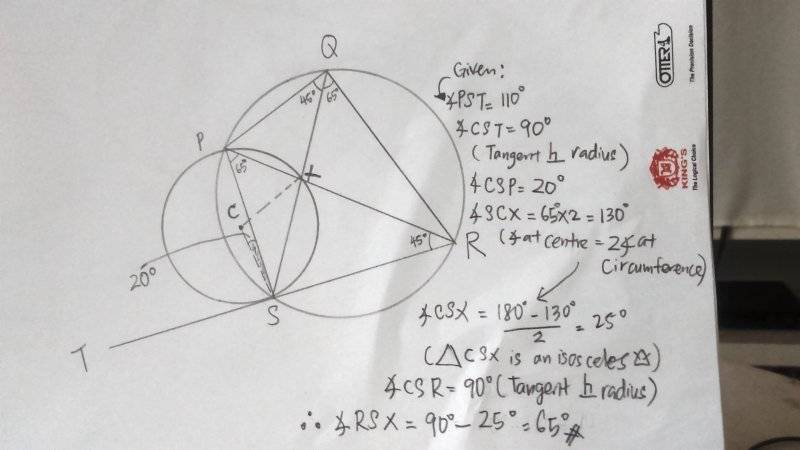 Q
Given:
∡PST = 110°
∡CST = 90°
(Tangent ⊥ radius)
∡CSP = 20°
∡SCX = 65°x2 = 130°
(∡at centre = 2∡at
Circumference)
∡CSX = 180° - 130°
2
= 25°
(△CSX is an isosceles △)
∡CSR = 90° (Tangent ⊥ radius)
∴ ∡RSX = 90° - 25° = 65°#
45°
65°
P
65°
X
C
45°
R
20°
S
T
OTTER
The Precision Decision
KING'S
The Logical Choice